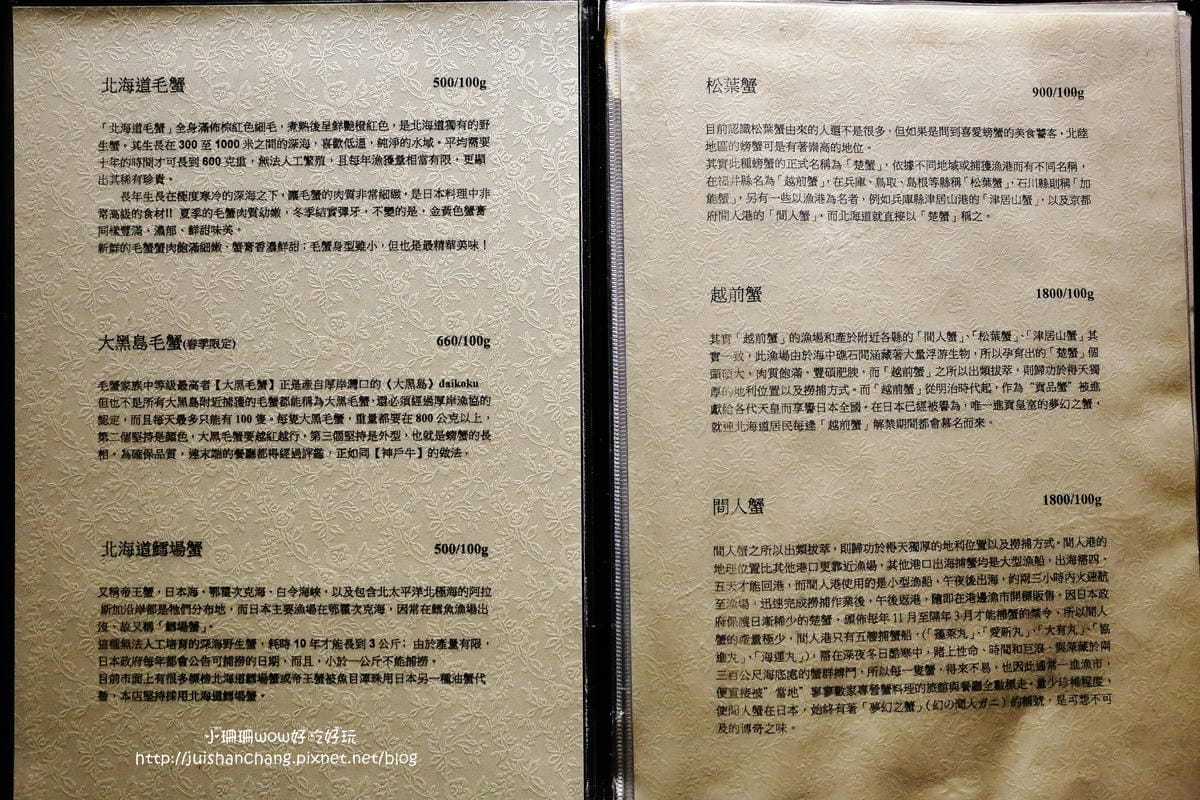 北海道毛蟹 500/100g
「北海道毛蟹」全身滿佈棕紅色細毛，煮熟後呈鮮艷橙紅色，是北海道獨有的野
生蟹。其生長在 300 至 1000 米之間的深海，喜歡低溫，純淨的水域。平均需要
十年的時間才可長到 600 克重，無法人工繁殖，且每年漁獲量相當有限，更顯
出其稀有珍貴。
長年生長在極度寒冷的深海之下，讓毛蟹的肉質非常細緻，是日本料理中非
常高級的食材!! 夏季的毛蟹肉質幼嫩，冬季結實彈牙，不變的是，金黃色蟹膏
同樣豐滿、濃郁、鮮甜味美。
新鮮的毛蟹蟹肉飽滿細嫩、蟹膏香濃鮮甜；毛蟹身型雖小，但也是最精華美味！
大黑島毛蟹(春季限定) 660/100g
毛蟹家族中等級最高者【大黑毛蟹】正是產自厚岸灣口的《大黑島》daikoku
但也不是所有大黑島附近捕獲的毛蟹都能稱為大黑毛蟹，還必須經過厚岸漁協的
認定，而且每天最多只能有 100 隻。每隻大黑毛蟹，重量都要在 800 公克以上，
第二個堅持是顏色，大黑毛蟹要越紅越行，第三個堅持是外型，也就是螃蟹的長
相。為確保品質，連末端的餐廳都得經過評鑑，正如同【神戶牛】的做法。
北海道鱈場蟹 500/100g
又稱帝王蟹，日本海。鄂霍次克海，白令海峽，以及包含北太平洋北極海的阿拉
斯加沿岸都是牠們分布地，而日本主要漁場在鄂霍次克海，因常在鱈魚漁場出
沒、故又稱「鱈場蟹」。
這種無法人工培育的深海野生蟹，耗時 10 年才能長到 3 公斤；由於產量有限，
日本政府每年都會公告可捕撈的日期，而且，小於一公斤不能捕撈。
目前市面上有很多標榜北海道鱈場蟹或帝王蟹被魚目混珠用日本另一種油蟹代
替，本店堅持採用北海道鱈場蟹。
小珊珊wow好吃好玩
http://juishanchang.pixnet.net/blog
松葉蟹 900/100g
目前認識松葉蟹由來的人還不是很多，但如果是問到喜愛螃蟹的美食饕客，北陸
地區的螃蟹可是有著崇高的地位。
其實此種螃蟹的正式名稱為「楚蟹」，依據不同地域或捕獲漁港而有不同名稱，
在福井縣名為「越前蟹」，在兵庫、鳥取、島根等縣稱「松葉蟹」，石川縣則稱「加
能蟹」，另有一些以漁港為名者，例如兵庫縣津居山港的「津居山蟹」，以及京都
府間人港的「間人蟹」，而北海道就直接以「楚蟹」稱之。
越前蟹 1800/100g
其實「越前蟹」的漁場和產於附近各縣的「間人蟹」、「松葉蟹」、「津居山蟹」其
實一致，此漁場由於海中礁石間涵藏著大量浮游生物，所以孕育出的「楚蟹」個
頭碩大，肉質飽滿、豐碩肥腴，而「越前蟹」之所以出類拔萃，則歸功於得天獨
厚的地利位置以及撈捕方式。而「越前蟹」從明治時代起，作為“貢品蟹”被進
獻給各代天皇而享譽日本全國。在日本已經被譽為，唯一進貢皇室的夢幻之蟹，
就連北海道居民每逢「越前蟹」解禁期間都會慕名而來。
間人蟹 1800/100g
間人蟹之所以出類拔萃，則歸功於得天獨厚的地利位置以及撈捕方式。間人港的
地理位置比其他港口更靠近漁場，其他港口出海捕蟹均是大型漁船，出海需四、
五天才能回港，而間人港使用的是小型漁船，午夜後出海，約兩三小時內火速航
至漁場，迅速完成撈捕作業後，午後返港，隨即在港邊漁市開標販售。因日本政
府保護日漸稀少的楚蟹，頒佈每年 11 月至隔年 3 月才能捕蟹的禁令，所以間人
蟹的產量極少，間人港只有五艘捕蟹船，(「蓬萊丸」、「愛新丸」、「大有丸」、「協
進丸」、「海運丸」)，需在深夜冬日酷寒中，賭上性命、時間和巨浪、與深藏於兩
三百公尺海底處的蟹群搏鬥，所以每一隻蟹，得來不易，也因此通常一進漁市，
便直接被”當地”寥寥數家專營蟹料理的旅館與餐廳全數標走。量少珍稀程度，
使間人蟹在日本，始終有著「夢幻之蟹」(幻の間人ガニ) 的稱號，是可想不可
及的傳奇之味。